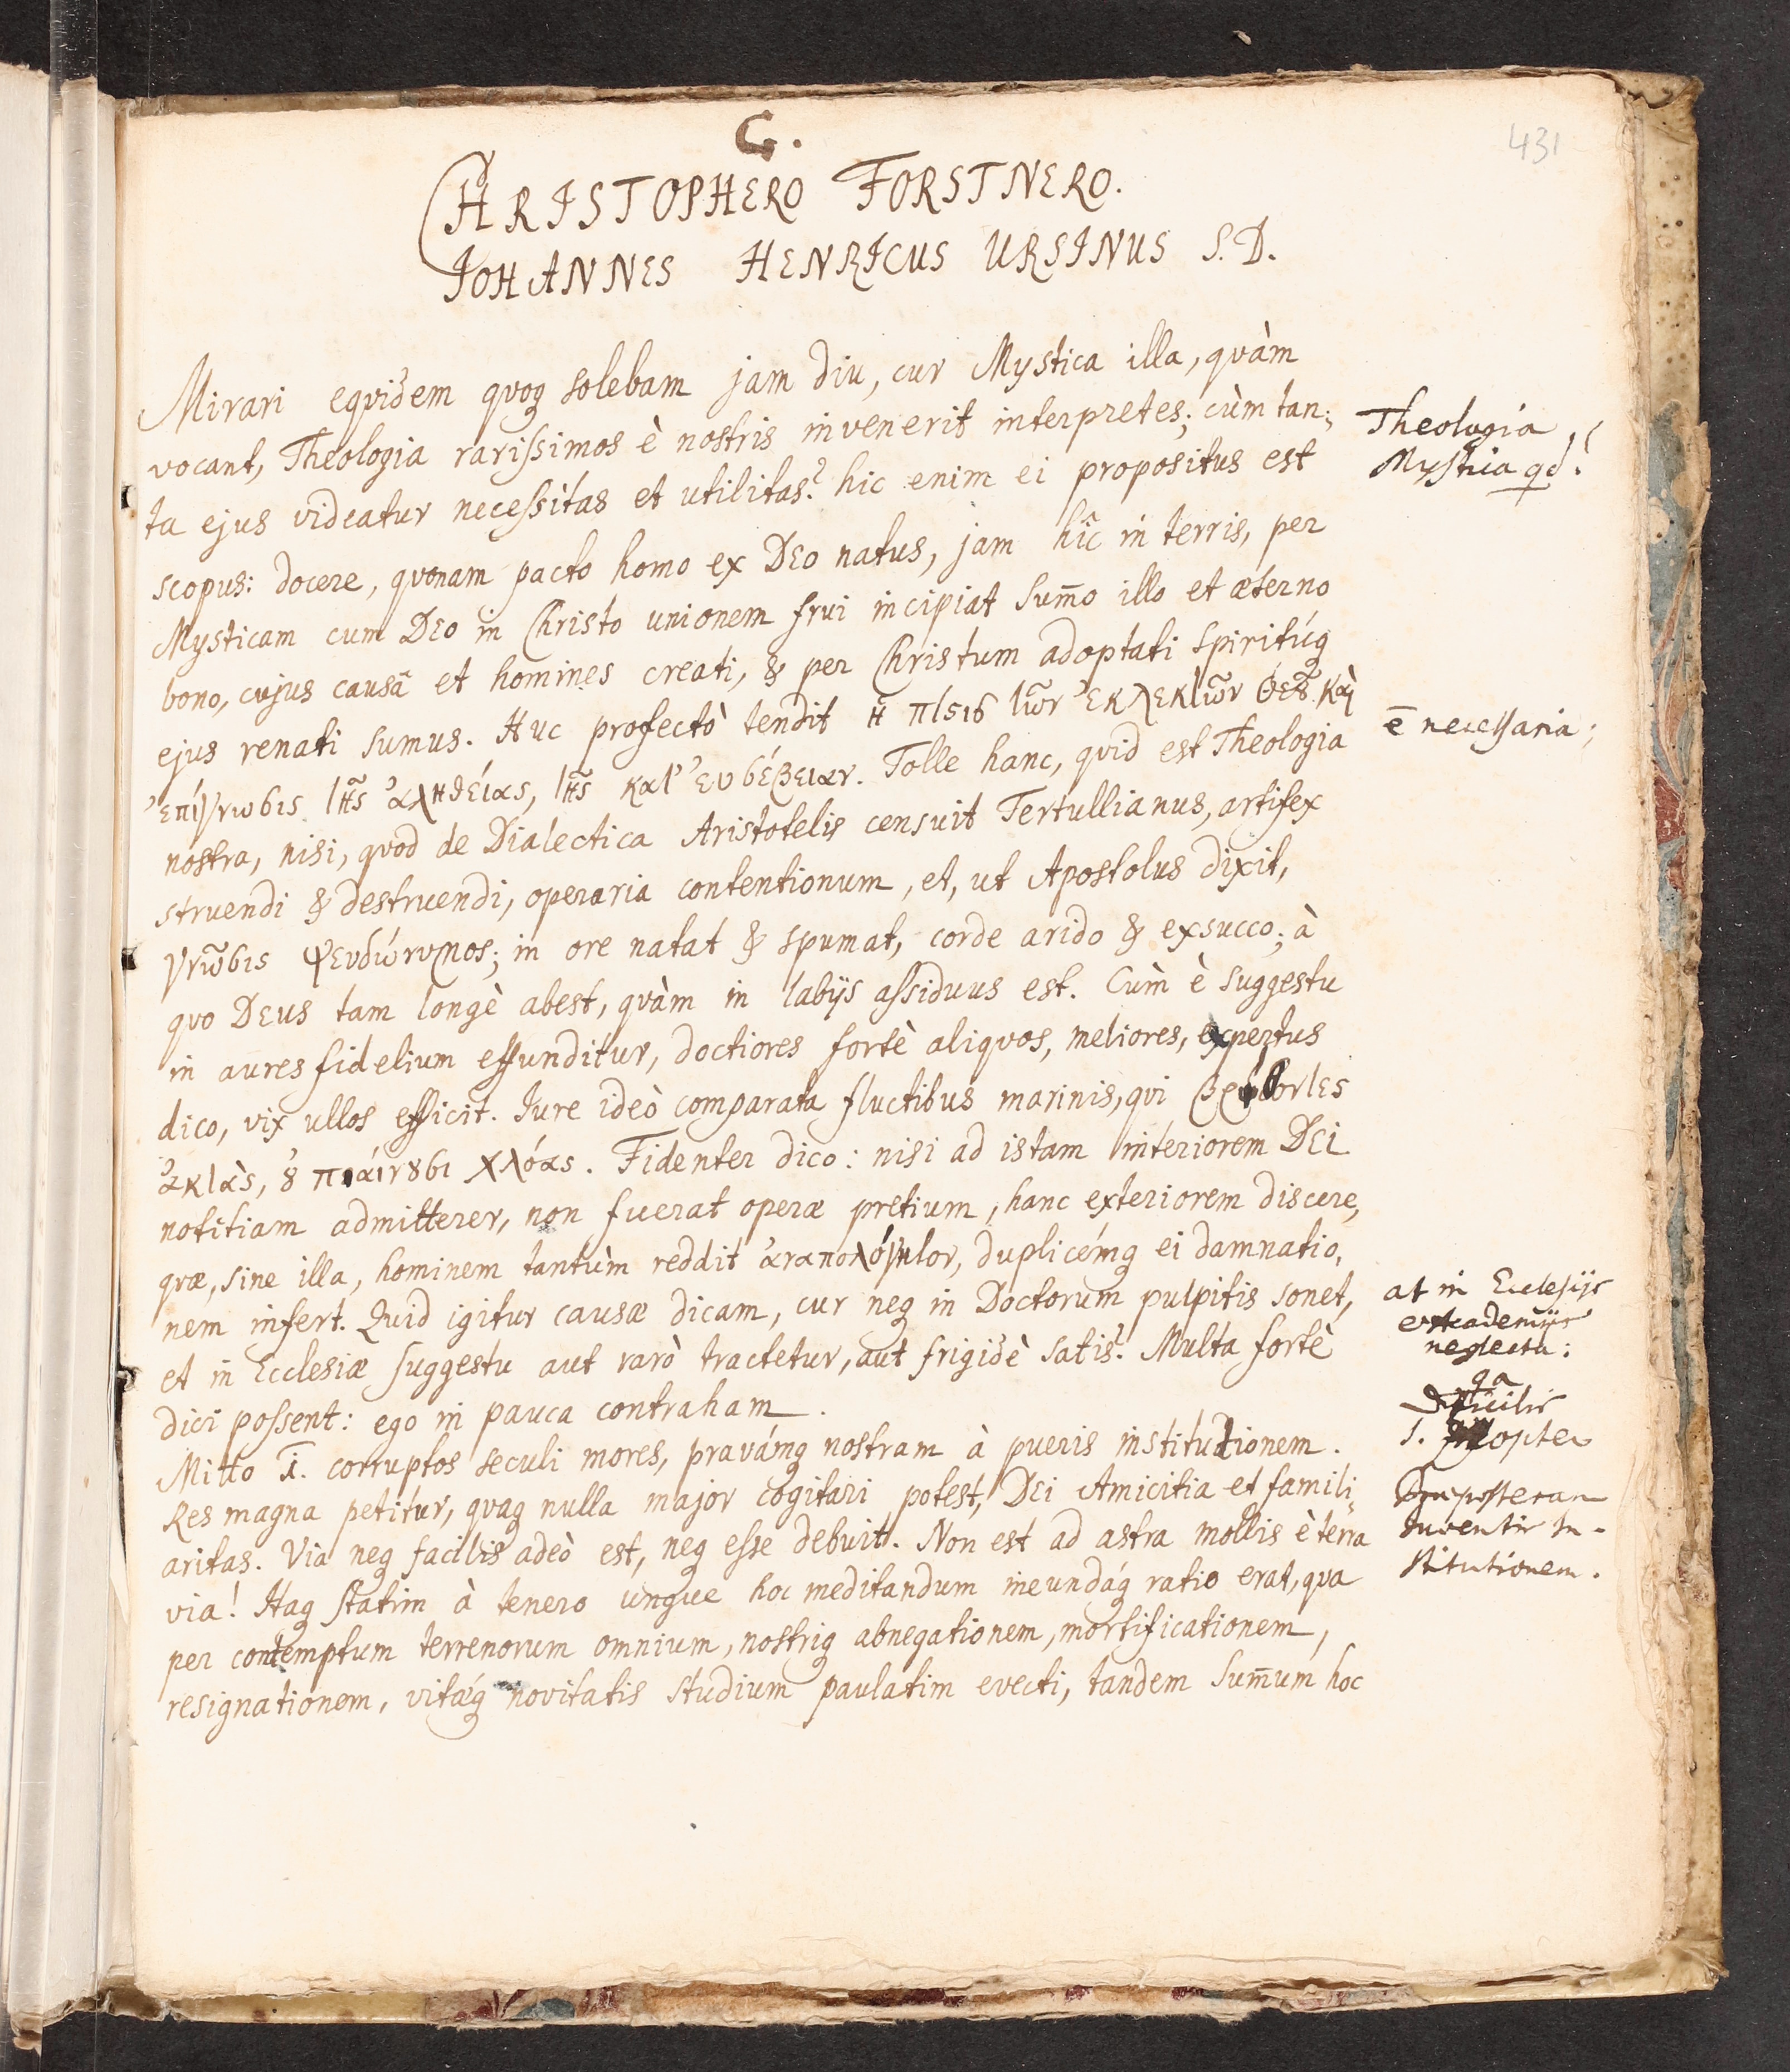 C.
431
CHRISTOPHERO FORSTNERO.
JOHANNES HENRICUS URSINUS S.D.
Mirari eqvidem qvoq solebam jam diu, cur Mystica illa, qvàm
vocant, Theologia rarissimos è nostris invenerit interpretes; cùm tan-
ta ejus videatur necessitas et utilitas? hic enim ei propositus est
scopus: docere, qvonam pacto homo ex DEO natus, jam hîc in terris, per
Mysticam cum DEO in Christo unionem frui incipiat sum̄o illo et æterno
bono, cujus causâ et homines creati, & per Christum adoptati spiritúq
ejus renati sumus. Huc profectò tendit ἡ πίϛις τῶν ἐκλεκτῶν Θεȣ͂ καὶ
ἐπίγνωσις τῆς ἀληθείας, τῆς κατ' ἐυσέβειαν. Tolle hanc, qvid est Theologia
nostra, nisi, qvod de Dialectica Aristotelis censuit Tertullianus, artifex
struendi & destruendi, operaria contentionum, et, ut Apostolus dixit,
γνῶσις ψευδώνυμος; in ore natat & spumat, corde arido & exsucco; à
qvo DEUS tam longè abest, qvàm in labijs assiduus est. Cùm è suggestu
in aures fidelium effunditur, doctiores fortè aliqvos, meliores, expertus
dico, vix ullos efficit. Jure ideò comparata fluctibus marinis, qvi
ἀκτὰς, ȣ̓ πιάινȣσι χλόας. Fidenter dico: nisi ad istam interiorem DEI
notitiam admitterer, non fuerat operæ pretium, hanc exteriorem discere,
qvæ, sine illa, hominem tantùm reddit ἀναπολόγητον, duplicémq ei damnatio-
nem infert. Quid igitur causæ dicam, cur neq in Doctorum pulpitis sonet,
et in Ecclesiæ suggestu aut rarò tractetur, aut frigidè satis? Multa fortè
dici possent: ego in pauca contraham.
Mitto I. corruptos seculi mores, pravámq nostram à pueris institutionem.
Res magna petitur, qvaq nulla major cogitari potest, DEI Amicitia et famili-
aritas. Via neq facilis adeò est, neq esse debuit. Non est ad astra mollis è terra
via! Itaq statim à tenero ungue hoc meditandum ineundáq ratio erat, qva
per contemptum terrenorum omnium, nostriq abnegationem, mortificationem,
resignationem, vitæq novitatis studium paulatim evecti, tandem sum̄um hoc
Theologia
Mystica qd?
ē necessaria;
at in Ecclesijs
et Academijs
neglecta:
qa
difficilis
1. propter
Præposteram
Juventis In-
stitutionem.